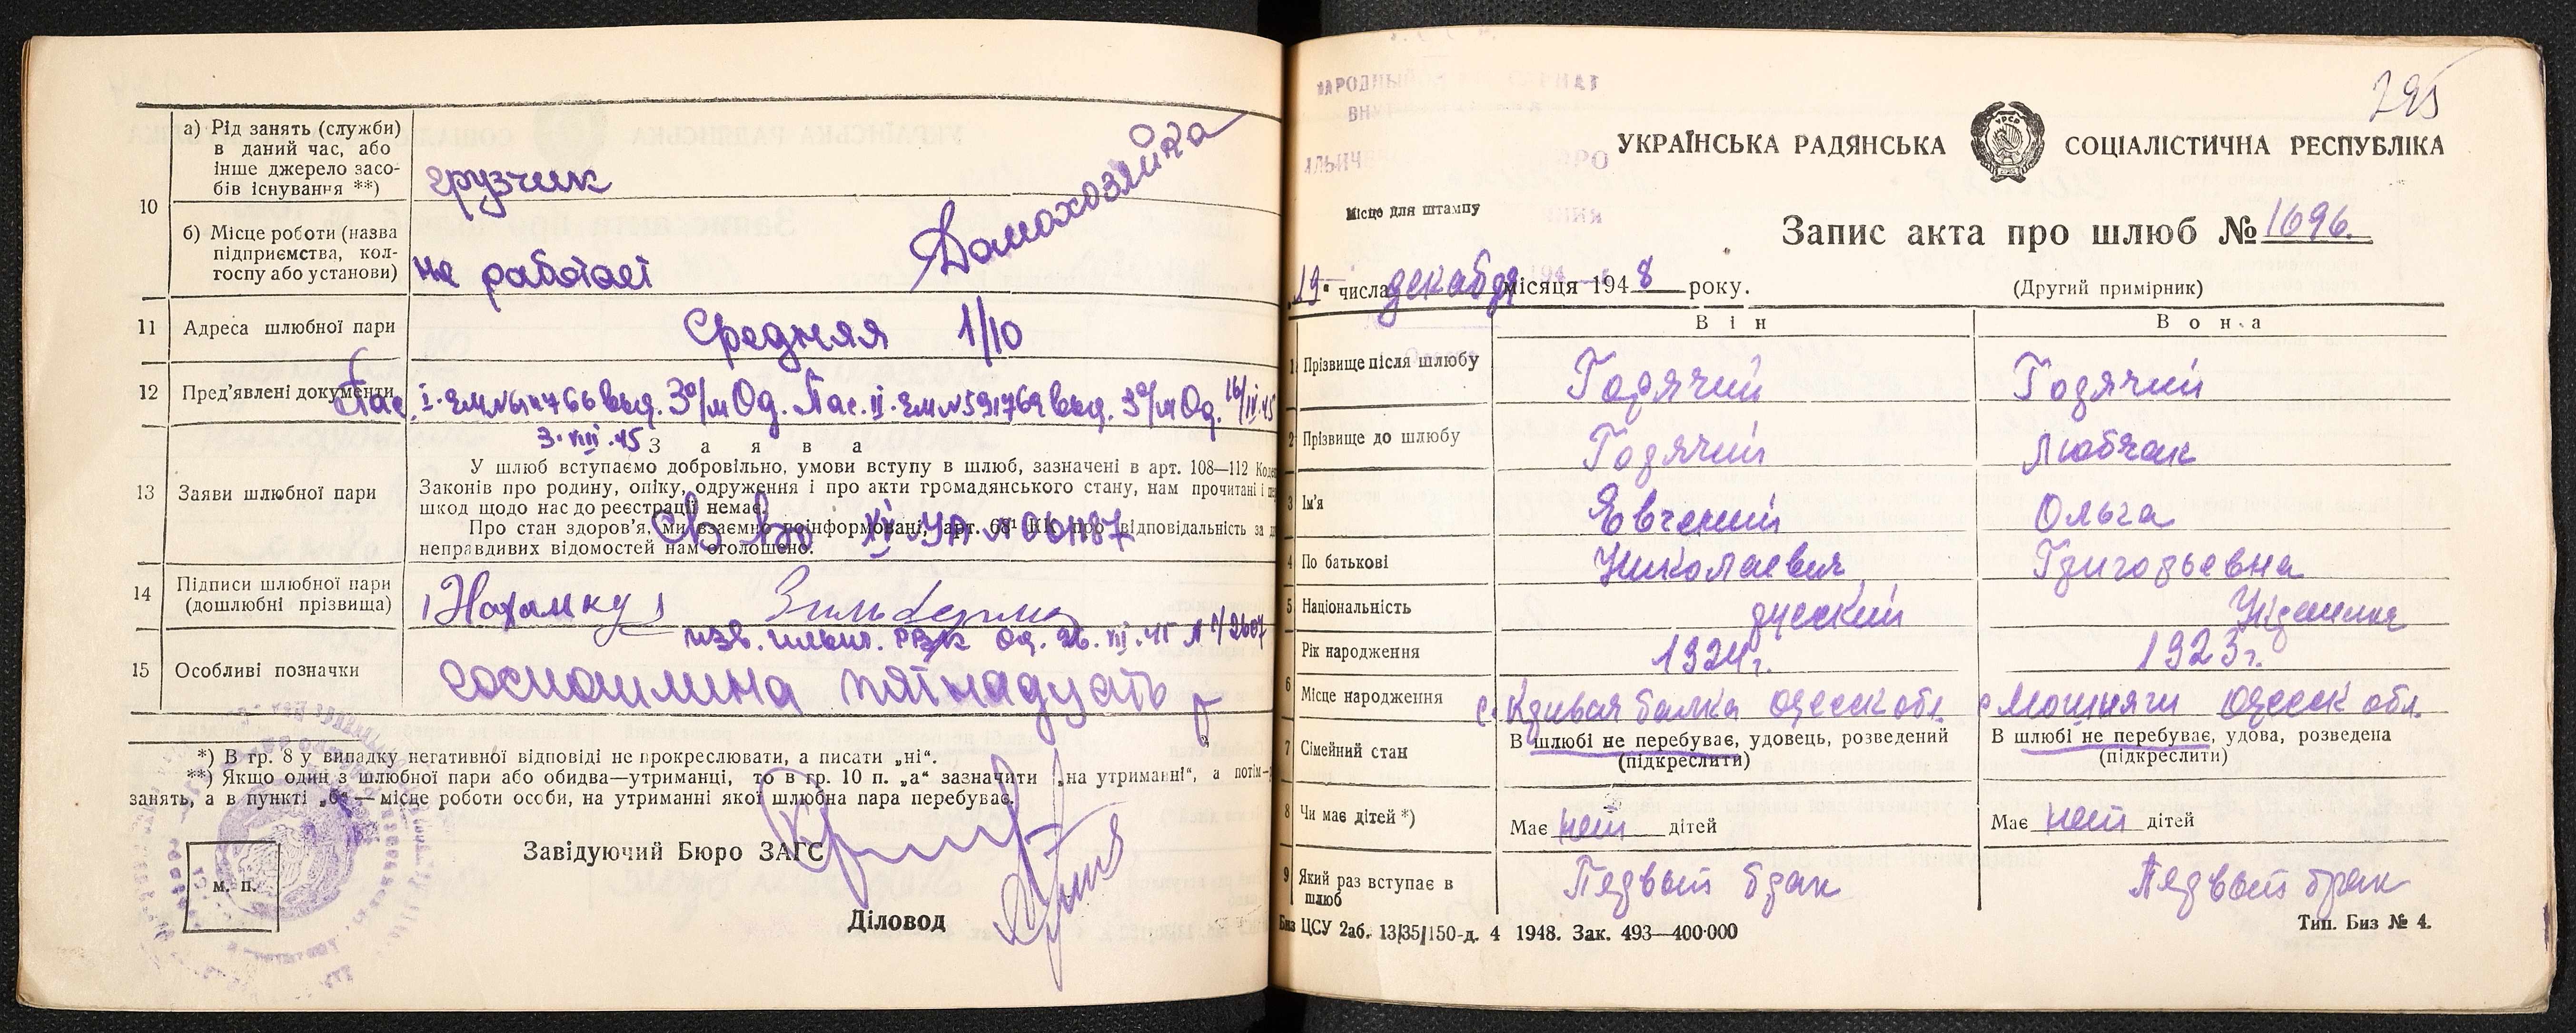 а) Рід занять (служби)
в даний час, або
інше джерело засо-
бів існування **)
грузчик
Домохозяйка
10
б) Місце роботи (назва
підприємства, кол-
госпу або установи)
не работает
11 Адреса шлюбної пари Средняя 1/10
12 Пред’явлені документи
3·VIII·45
З а я в а
У шлюб вступаємо добровільно, умови вступу в шлюб, зазначені в арт. 108—112
Законів про родину, опіку, одруження і про акти громадянського стану, нам прочитані і
шкод щодо нас до реєстрації немає.
13 Заяви шлюбної пари
Про стан здоров’я, ми взаємно поінформовані, арт. 68¹ КК про відповідальність за
неправдивих відомостей нам оголошено.
14 Підписи шлюбної пари
(дошлюбні прізвища)
15 Особливі позначки
пятнадцать р
*) В гр. 8 у випадку негативної відповіді не прокреслювати, а писати „ні“.
**) Якщо один з шлюбної пари або обидва—утриманці, то в гр. 10 п. „а“ зазначити „на утриманні“, а потім—
занять, а в пункті „б“—місце роботи особи, на утриманні якої шлюбна пара перебуває.
Завідуючий Бюро ЗАГС
м. п.
Діловод
295
УКРАЇНСЬКА РАДЯНСЬКА СОЦІАЛІСТИЧНА РЕСПУБЛІКА
Місце для штампу
Запис акта про шлюб № 1696.
„19“ числа декабря місяця 1948 року.
(Другий примірник)
Він Вона
1 Прізвище після шлюбу Горячий Горячий
2 Прізвище до шлюбу Горячий Любчак
3 Ім’я Евгений Ольга
4 По батькові Николаевич Григорьевна
5 Національність русский Украинка
Рік народження 1924г. 1923г.
6 Місце народження с. Кривая балка Одесск обл. с Мошняги Одесск обл.
7 Сімейний стан В шлюбі не перебуває, удовець, розведений В шлюбі не перебуває, удова, розведена
(підкреслити) (підкреслити)
8 Чи має дітей *) Має нет дітей Має нет дітей
9 Який раз вступає в
шлюб
Первый брак Первый брак
Биз ЦСУ 2аб. 13/35/150-д. 4 1948. Зак. 493—400·000 Тип. Биз № 4.